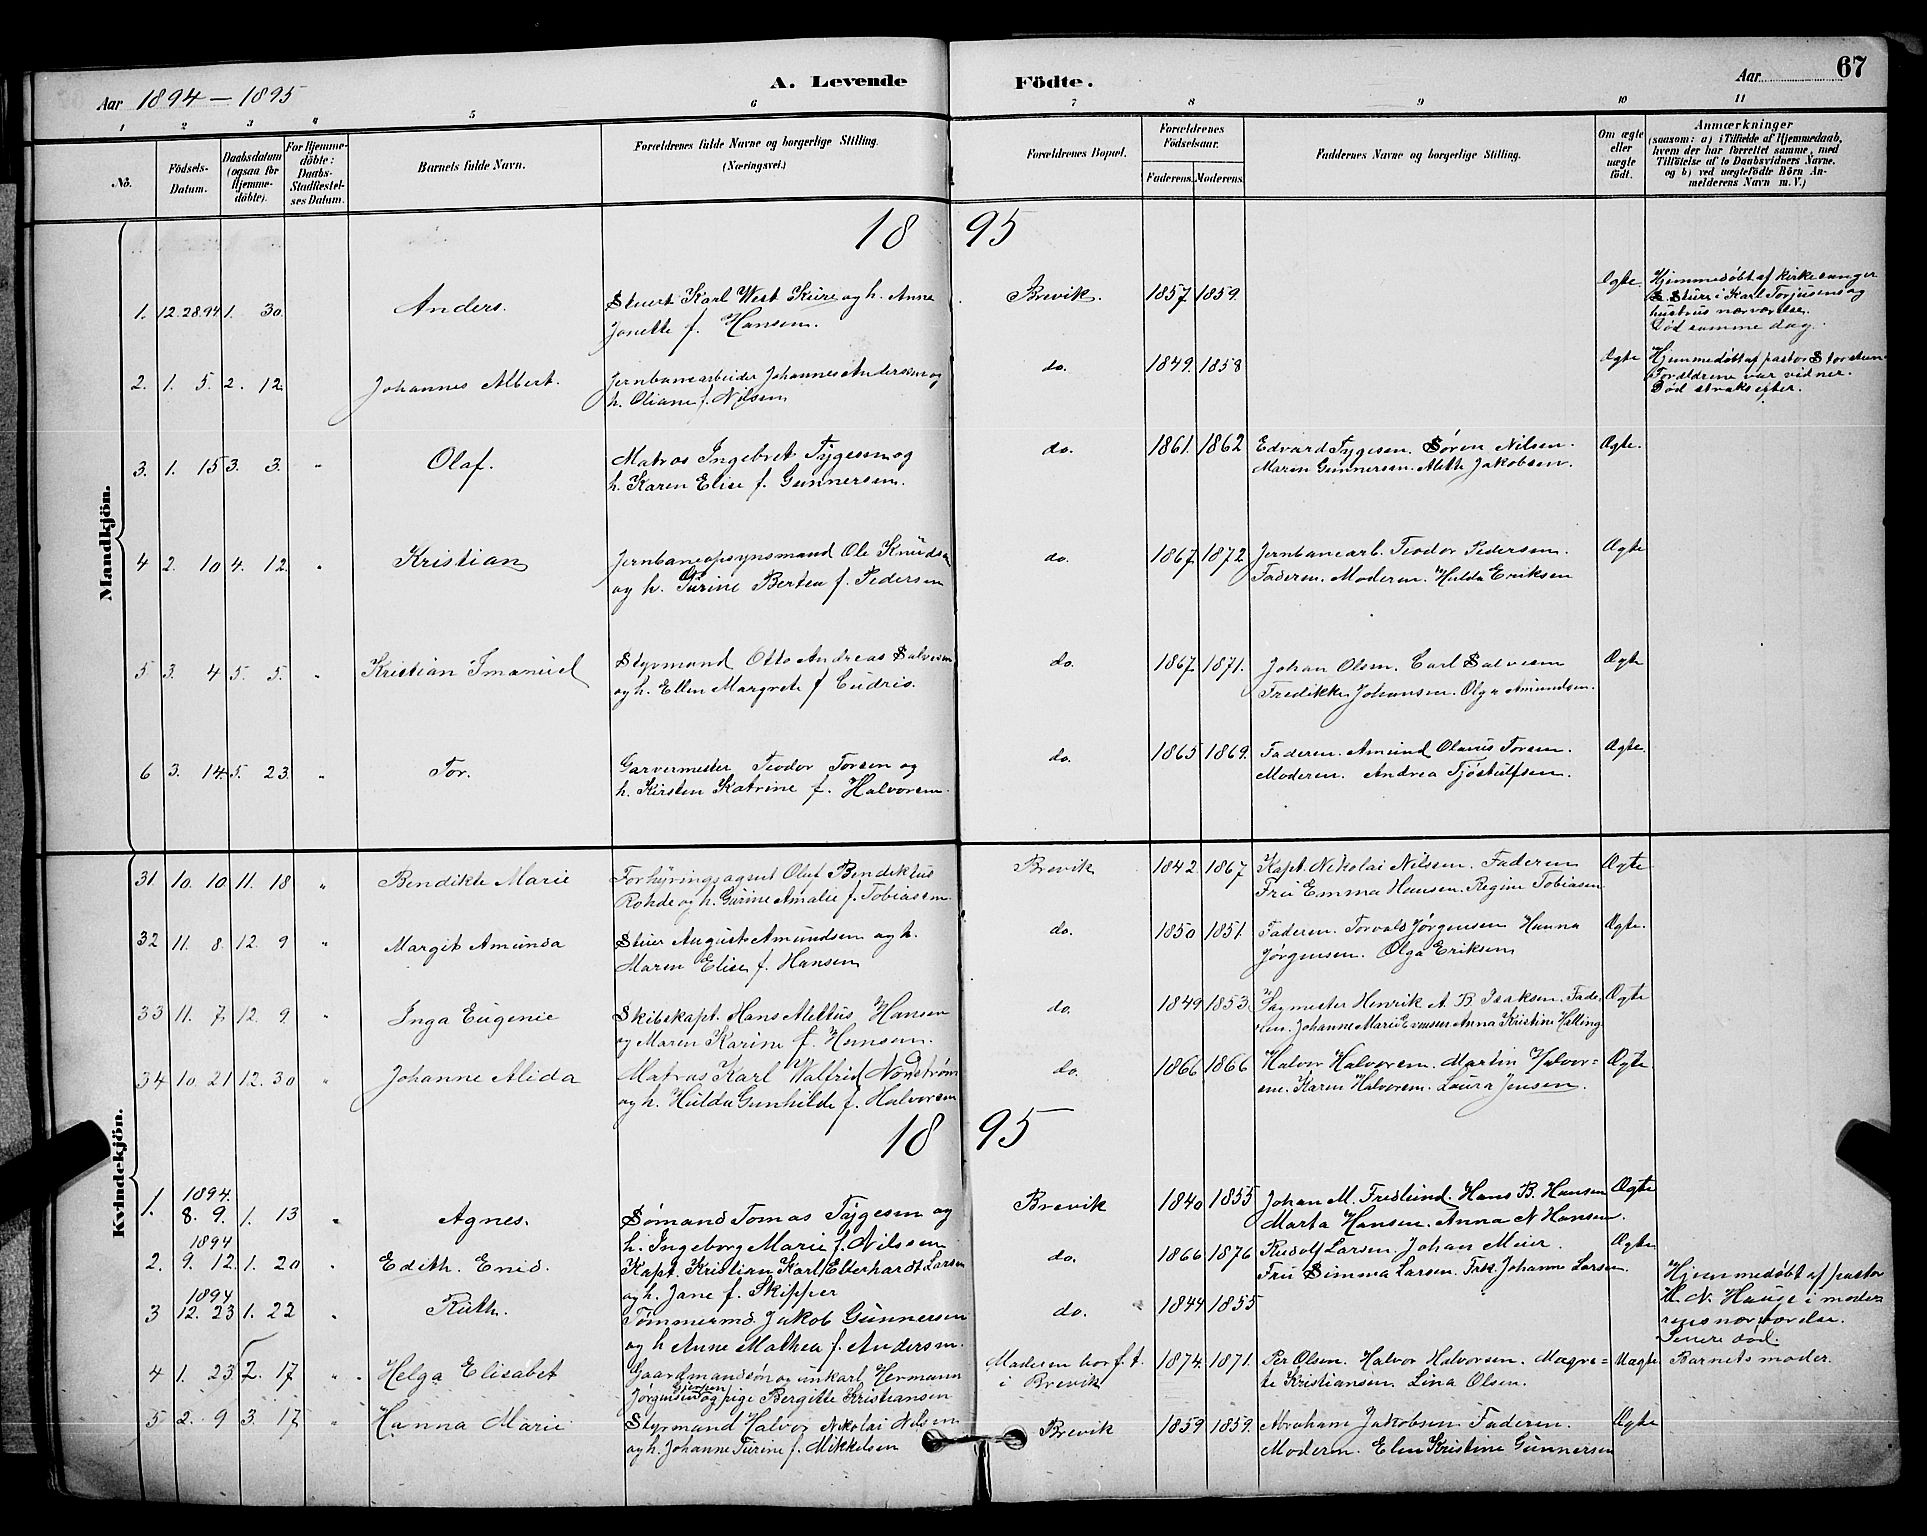 Aar 1894 – 1895
A. Levende Födte.
Aar
67
1 2 3 4 5 6 7 8 9 10 11
No.
Födsels-Datum.
Daabsdatum (ogsaa for Hjemme-döbte).
For Hjemme-döbte: Daabs-Stadfæstel-ses Datum.
Barnets fulde Navn.
Forældrenes fulde Navne og borgerlige Stilling. (Næringsvei.)
Forældrenes Bopæl.
Forældrenes Födselsaar.
Faderens. Moderens.
Faddernes Navne og borgerlige Stilling.
Om ægte eller uægte födt.
Anmærkninger
(saasom: a) i Tilfælde af Hjemmedaab, hvem der har forrettet samme, med Tilföielse af to Daabsvidners Navne. og b) ved uægtefödte Börn Anmelderens Navn m. V.)
Mandkjön.
18 95
1. 12. 28. 94 1. 30. Anders. Stuert Karl West Kure og h. Anne Brevik. 1857. 1859. Ægte. Hjemmedøbt af kirkesanger
Jonette f. Hansen. Karl Torjusens og
hustrus nærværelse.
Død samme dag.
2. 1. 5. 2. 12. Johannes Albert. Jernbanearbeider Johannes Andersen og do. 1849. 1858 Ægte Hjemmedøbt af pastor Storaun
h. Oliane f. Nilsen Forældrene var vidner.
Død straks efter.
3. 1. 15 3. 3. " Olaf. Matros Ingebret Tygesen og do. 1861. 1862 Edvard Tygesen. Søren Nilsen. Ægte.
h. Karen Elise f. Gunnersen. Maren Gunnersen. Alette Jakobsen.
4 2. 10 4. 12. " Kristian Jernbaneopsynsmand Ole Knudsen do. 1867 1872 Jernbanearb. Teodor Pedersen. Ægte
og h. Gurine Bertea f. Pedersen Faderen. Moderen. Hulda Eriksen
5 3. 4 5. 5. " Kristian Imanuel Styrmand Otto Andreas Salvesen do. 1867 1871. Johan Olsen. Carl Salvesen Ægte
og h. Ellen Margrete f. Cudris. Fredikke Johansen. Olga Amundsen.
6 3. 14 5. 23. " Tor. Garvermester Teodor Torsen og do. 1865 1869. Faderen. Amund Olavus Torsen. Ægte
h. Kirsten Katrine f. Halvorsen. Moderen. Andrea Tjøstulfsen.
Kvindekjön.
31 10. 10 11. 18 " Bendikte Marie Forhyringsagent Oluf Bendiktus Brevik 1842 1867 Kapt. Nikolai Nilsen. Faderen Ægte
Rohde og h. Gurine Amalie f. Tobiasen. Fru Emma Hansen. Regine Tobiasen
32 11. 8. 12. 9 " Margit Amunda Stuer August Amundsen og h. do. 1850 1851. Faderen. Torvald Jørgensen Hanna Ægte.
Maren Elise f. Hansen Jørgensen. Olga Eriksen
33 11. 7. 12. 9. " Inga Eugenie Skibskapt. Hans Alettus Hansen do. 1849 1853. Sagmester Henrik A. B. Isaksen. Fade- Ægte
og Maren Karine f. Hansen. ren. Johanne Marie Evensen Anna Kristine Halling
34 10. 21 12. 30 " Johanne Alida Matros Karl Walfrid Nordstrøm do. 1866 1866 Halvor Halvorsen. Martin Halvor- Ægte
og h. Hulda Gunhilde f. Halvorsen sen. Karen Halvorsen. Laura Jensen.
18 95
1. 1894. 8. 9. 1. 13 " Agnes. Sømand Tomas Tygesen og Brevik 1840 1855 Johan M. Fredlund. Hans B. Hansen Ægte
h. Ingeborg Marie f. Nilssen Marta Hansen. Anna N Hansen.
2. 1894 9. 12. 1. 20 " Edith. Enid. Kapt. Kristian Karl Eberhardt Larsen do. 1866 1876 Rudolf Larsen. Johan Meier. Ægte
og h. Jane f. Skipper Fru Simma Larsen. Frk. Johanne Larsen.
3 1894 12. 23 1. 22 " Ruth. Tømmermd. Jakob Gunnersen do. 1844 1855 Hjemmedøbt af pastor
og h Anne Mathea f. Andersen. H. N. Hauge i moderens nærværelse.
Senere død.
4 1. 23 2. 17 " Helga Elisabet Gaardmandsøn og unkarl Hermann Moderen bor f. t. 1874. 1871. Per Olsen. Halvor Halvorsen. Magre- Uægte Barnets moder.
Jørgensen og pige Bergitte Kristiansen i Brevik te Kristiansen. Lina Olsen.
5 2. 9 3. 17 " Hanna Marie Styrmand Halvor Nikolai Nilsen Brevik 1859 1859. Abraham Jakobsen Faderen. Ægte
og h. Johanne Turine f. Mikkelsen Moderen. Elen Kristine Gunnersen